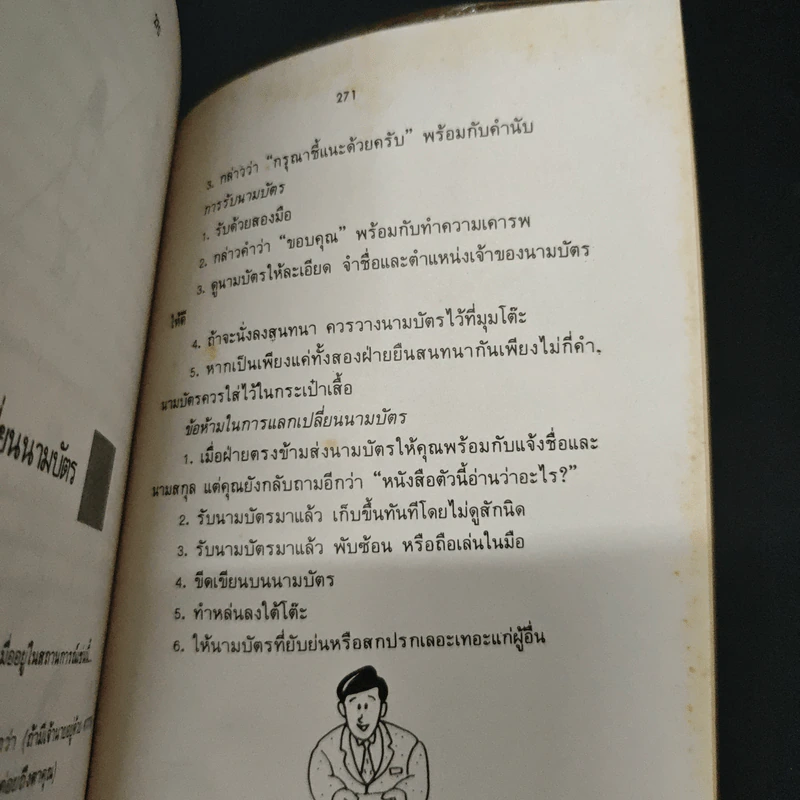 271
3. กล่าวว่า “กรุณาชี้แนะด้วยครับ” พร้อมกับคำนับ
การรับนามบัตร
1. รับด้วยสองมือ
2. กล่าวคำว่า “ขอบคุณ” พร้อมกับทำความเคารพ
3. ดูนามบัตรให้ละเอียด จำชื่อและตำแหน่งเจ้าของนามบัตร
ให้ดี
4. ถ้าจะนั่งลงสนทนา ควรวางนามบัตรไว้ที่มุมโต๊ะ
5. หากเป็นเพียงแค่ทั้งสองฝ่ายยืนสนทนากันเพียงไม่กี่คำ,
นามบัตรควรใส่ไว้ในกระเป๋าเสื้อ
ข้อห้ามในการแลกเปลี่ยนนามบัตร
1. เมื่อฝ่ายตรงข้ามส่งนามบัตรให้คุณพร้อมกับแจ้งชื่อและ
นามสกุล แต่คุณยังกลับถามอีกว่า “หนังสือตัวนี้อ่านว่าอะไร?”
2. รับนามบัตรมาแล้ว เก็บขึ้นทันทีโดยไม่ดูสักนิด
3. รับนามบัตรมาแล้ว พับซ้อน หรือถือเล่นในมือ
4. ขีดเขียนบนนามบัตร
5. ทำหล่นลงใต้โต๊ะ
6. ให้นามบัตรที่ยับย่นหรือสกปรกเลอะเทอะแก่ผู้อื่น